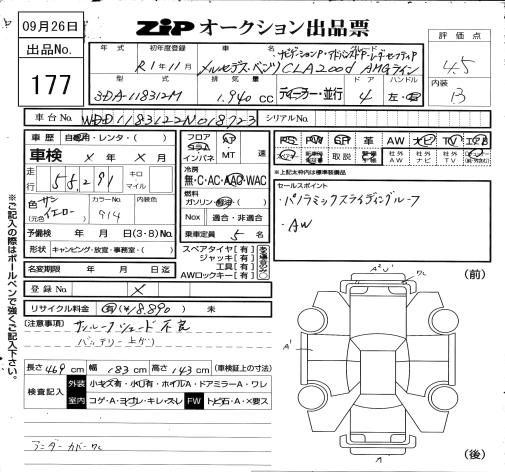 09月26日
ZIP オークション出品票
出品No.
177
年式 初年度登録 車名 グレード
R1年11月 メルセデス・ベンツCLA200d AMGライン
ナビゲーションP・アドバンスドP・レーダーセーフティP
型式 排気量 ドア ハンドル
3DA-118312M 1,940 cc ディーラー・並行 4 左・右
評価点
4.5
内装
B
車台No. WDD1183122N018723 シリアルNo.
車歴 自家用・レンタ・( )
車検 × 年 × 月
走行 58,291 キロ マイル
色(元色) サンイエロー カラーNo. 914 内装色
予備検 年 月 日(3・8)No.
形状 キャンピング・放宣・事務室・( )
名変期限 年 月 日迄
登録No. ×
リサイクル料金 有(¥18,890) 未
フロア コラム インパネ AT MT 速
冷房 無・C・AC・AAC・WAC
燃料 ガソリン・軽油・( )
Nox 適合・非適合
乗車定員 5 名
スペアタイヤ[有]
ジャッキ[有]
工具[有]
AWロックキー[有]
PS PW SR 革 AW ナビ TV
取説 社外AW 社外ナビ 社外TV
※上記太枠内は標準装備品
セールスポイント
・パノラミックスライディングルーフ
・AW
※ご記入の際はボールペンで強くご記入下さい。
[注意事項] サンルーフシェード不良
バッテリー上がり
長さ 469 cm 幅 183 cm 高さ 143 cm (車検証上の寸法)
検査記入 外装 小キズ有・小凹有・ホイルA・ドアミラーA・ワレ
室内 コゲ・A・ヨゴレ・キレ・スレ FW トビ石・A・×要ス
アンダーカバーワレ
(前)
A²U¹
ワレ
A¹
A
(後)